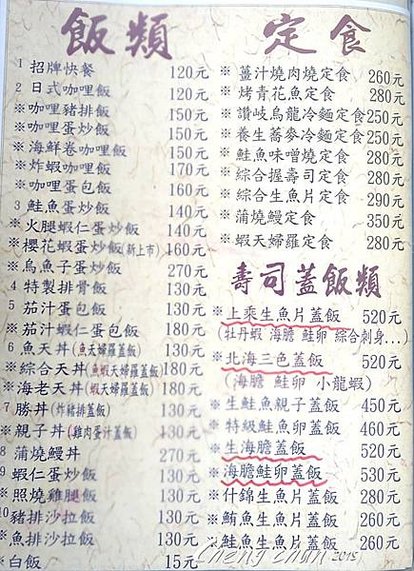 飯類
1 招牌快餐 120元
2 日式咖哩飯 120元
※咖哩豬排飯 150元
※咖哩蛋炒飯 150元
※海鮮卷咖哩飯 150元
※炸蝦咖哩飯 170元
※咖哩蛋包飯 160元
3 鮭魚蛋炒飯 140元
※火腿蝦仁蛋炒飯 140元
※櫻花蝦蛋炒飯(新上市) 160元
※烏魚子蛋炒飯 270元
4 特製排骨飯 130元
5 茄汁蛋包飯 130元
※茄汁蝦仁蛋包飯 180元
6 魚天丼(魚天婦羅蓋飯) 130元
※綜合天丼(魚蝦天婦羅蓋飯) 180元
※海老天丼(蝦天婦羅蓋飯) 180元
7 勝丼(炸豬排蓋飯) 130元
※親子丼(雞肉蛋汁蓋飯) 130元
8 蒲燒鰻丼 270元
9 蝦仁蛋炒飯 130元
※照燒雞腿飯 130元
10 豬排沙拉飯 130元
※魚排沙拉飯 130元
※白飯 15元
定食
※ 薑汁燒肉燒定食 260元
※ 烤青花魚定食 280元
※ 讚岐烏龍冷麵定食 250元
※ 養生蕎麥冷麵定食 250元
※ 鮭魚味噌燒定食 280元
※ 綜合握壽司定食 280元
※ 綜合生魚片定食 290元
※ 蒲燒鰻定食 350元
※ 蝦天婦羅定食 280元
壽司蓋飯類
※上乘生魚片蓋飯 520元
(牡丹蝦 海膽 鮭卵 綜合刺身...)
※北海三色蓋飯 520元
(海膽 鮭卵 小龍蝦)
※生鮭魚親子蓋飯 450元
※特級鮭魚卵蓋飯 460元
※生海膽蓋飯 520元
※海膽鮭卵蓋飯 530元
※什錦生魚片蓋飯 280元
※鮪魚生魚片蓋飯 260元
※鮭魚生魚片蓋飯 260元
2015